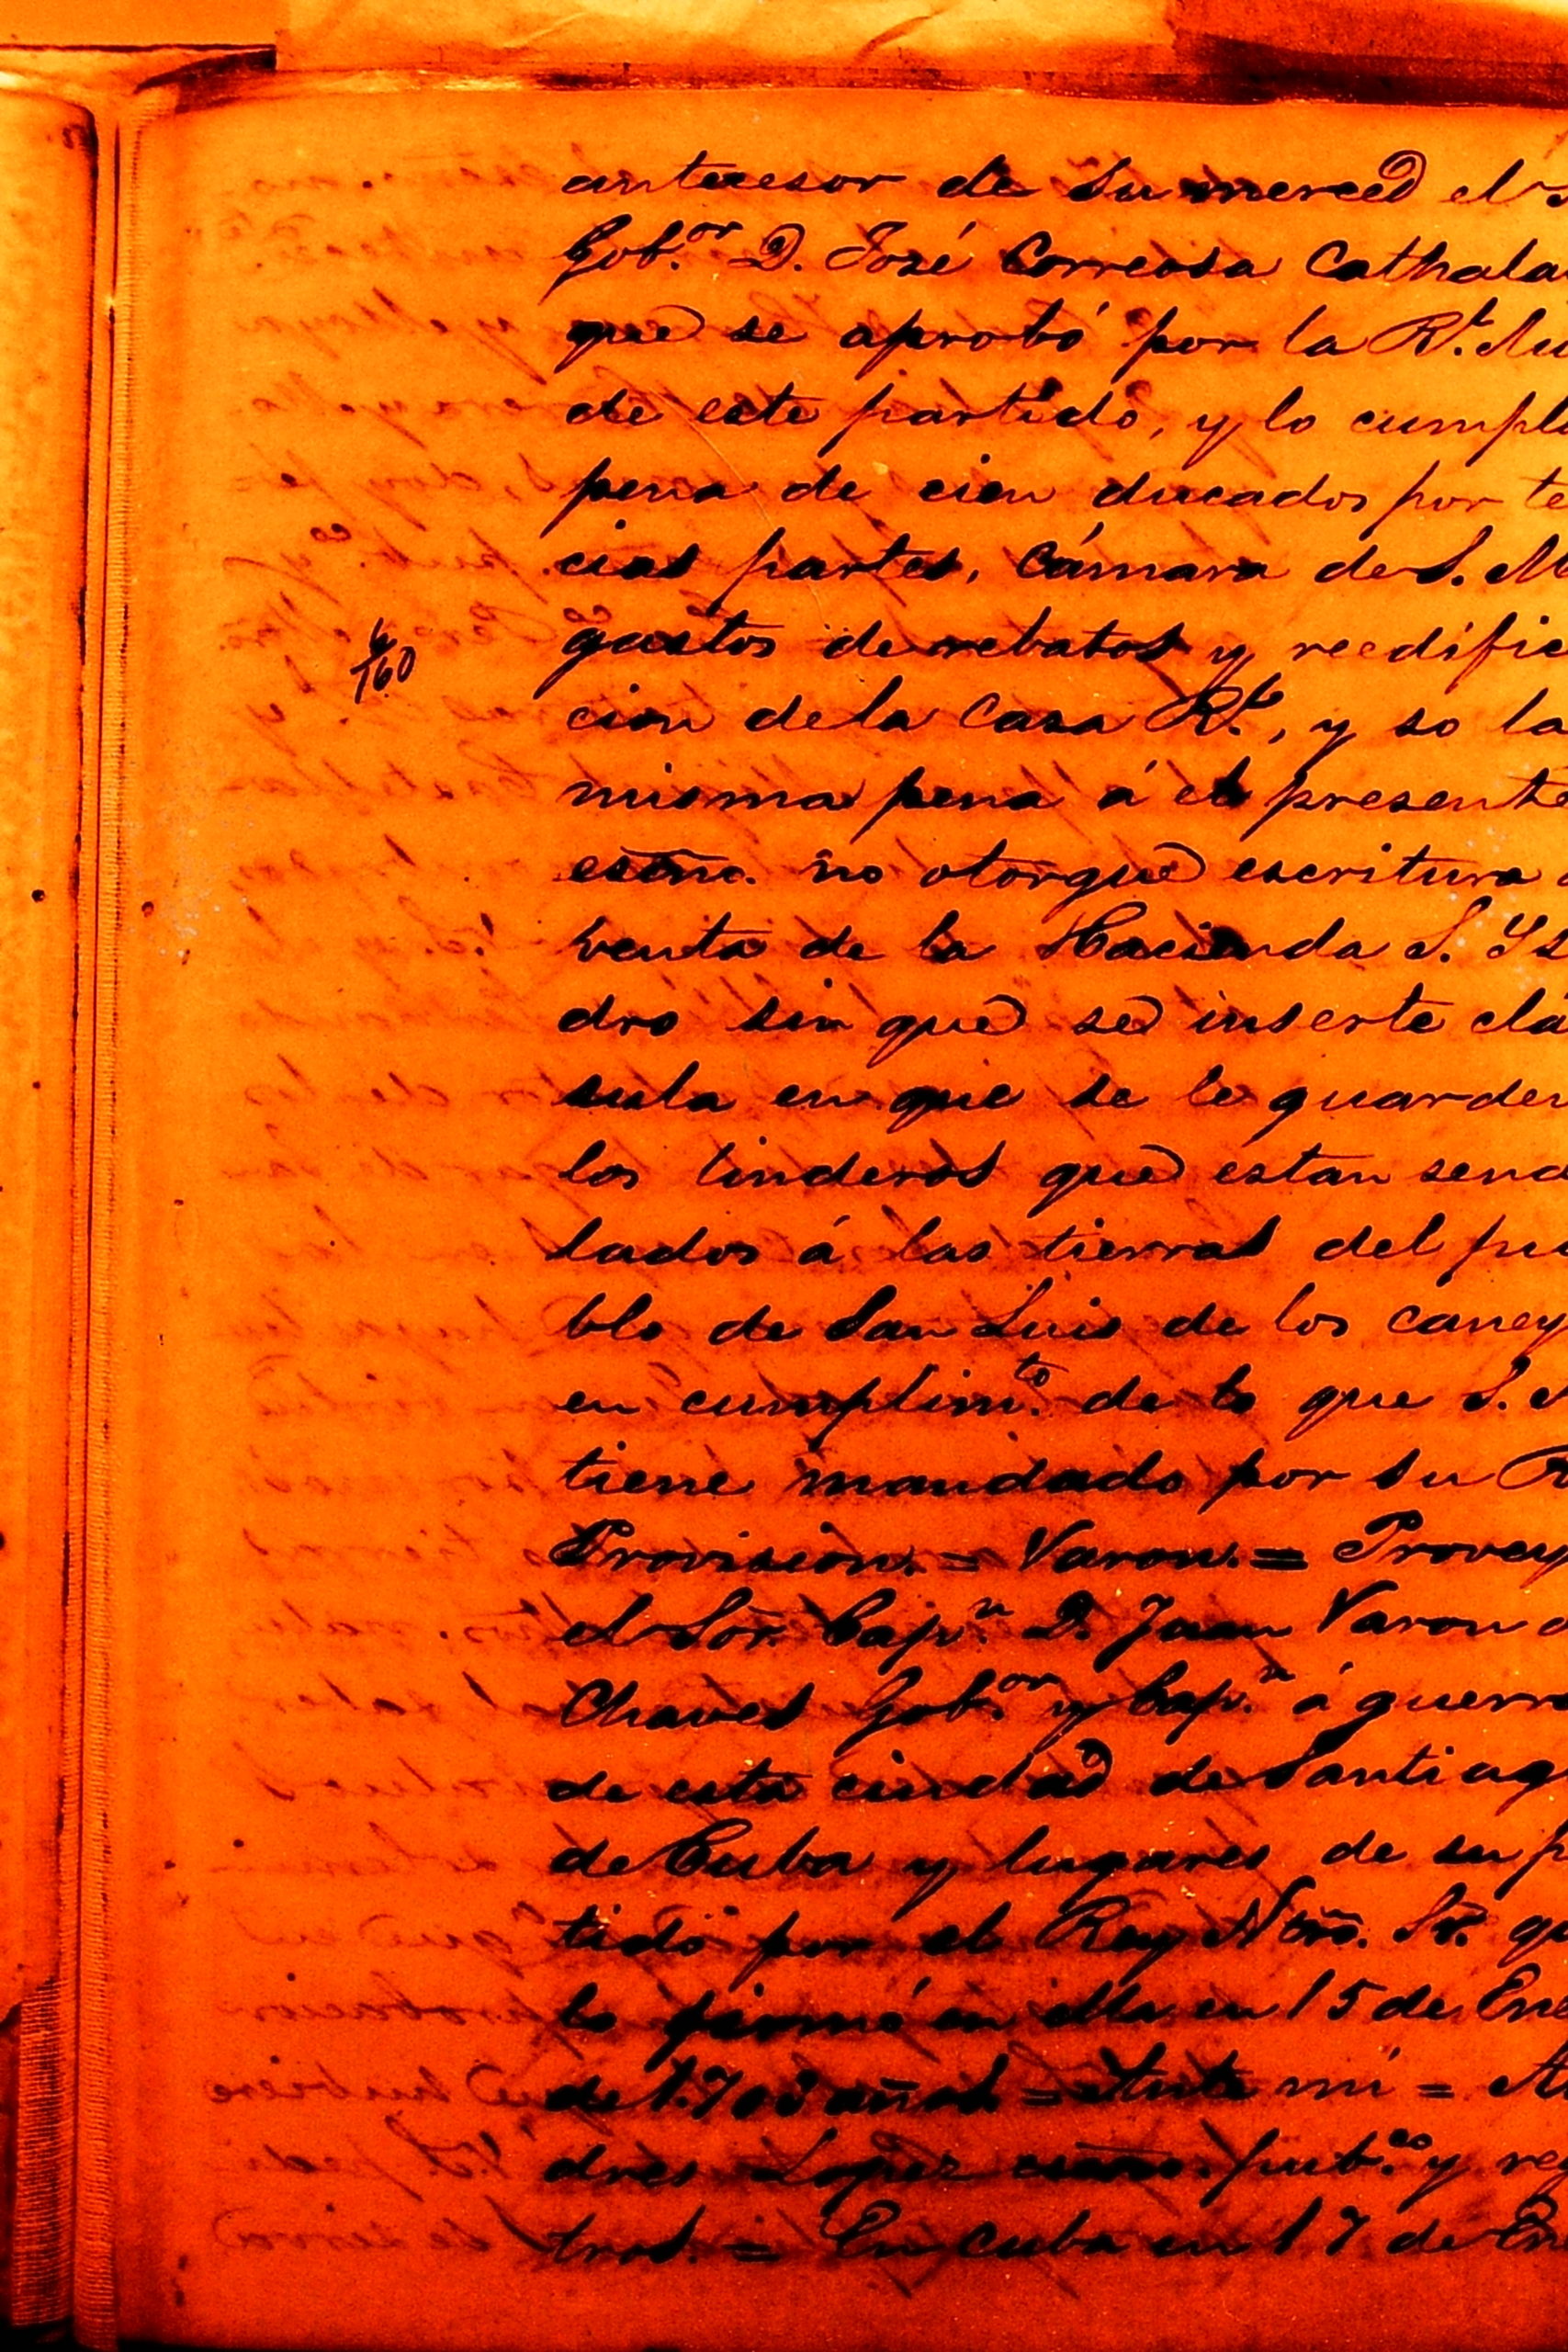 antecesor de su merced el S
Gob.or D. José Correosa Cathala
que se aprobó por la R.l Au
de este partido, y lo cumpl
pena de cien ducados por te
cias partes, Cámara de S. M
gastos de rebatos y reedific
160
cion de la Casa R.l, y so la
misma pena á el presente
esno. no otorgue escritura
venta de la Hacienda S. Ys
dro sin que se inserte cla
sula en que se le guarden
los linderos que estan sena
lados á las tierras del pu
blo de San Luis de los caney
en cumplim.to de lo que S.
tiene mandado por su R
Provision. = Varon. = Provey
el Sor. Cap.n D. Juan Varon
Chaves Gob.or y Cap.n á guerra
de esta ciudad de Santiag
de Cuba y lugares de su p
tido por el Rey Ntro. Sr. qu
lo firmó en ella en 15 de Ene
de 1.703 años = Ante mi = An
dres Lopez esno. pub.co y reg
tros. = En Cuba en 17 de En